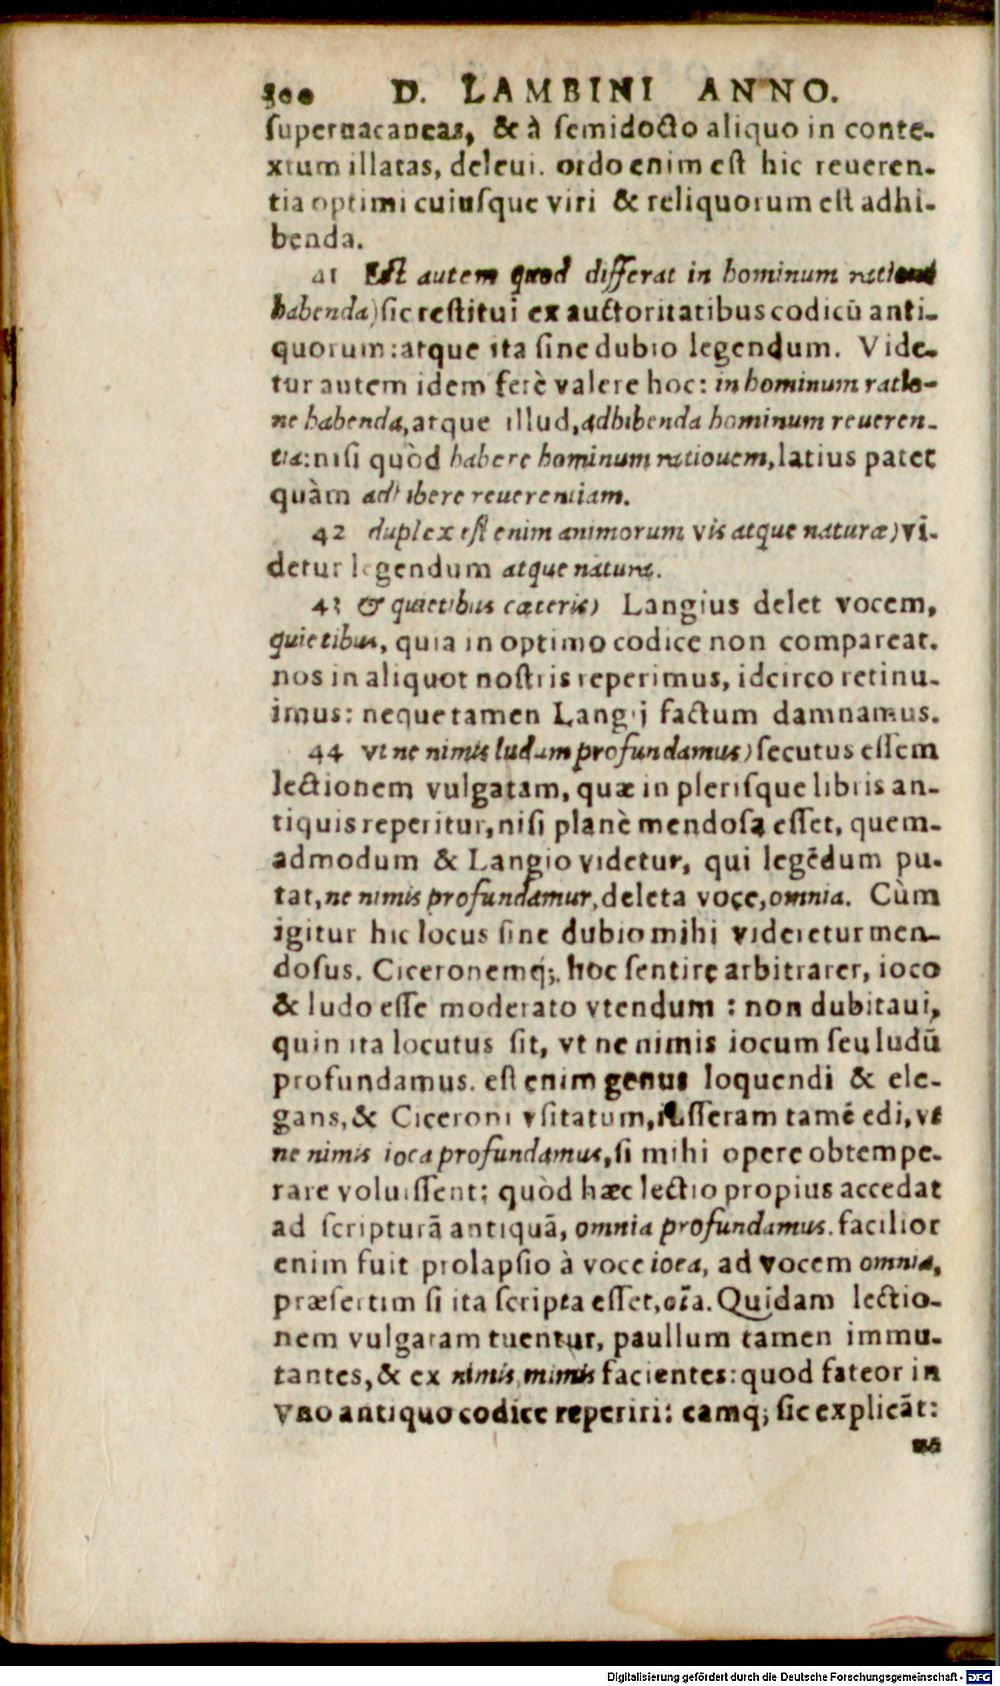 300 D. LAMBINI ANNO.
ſuperuacaneas, & à ſemidocto aliquo in conte-
xtum illatas, deleui. ordo enim eſt hic reueren-
tia optimi cuiuſque viri & reliquorum eſt adhi-
benda.
41 Eſt autem quod differat in hominum ratione
habenda) ſic reſtitui ex auctoritatibus codicū anti-
quorum: atque ita ſine dubio legendum. Vide-
tur autem idem ferè valere hoc: in hominum ratio-
ne habenda, atque illud, adhibenda hominum reueren-
tia: niſi quòd habere hominum rationem, latius patet
quàm adhibere reuerentiam.
42 duplex eſt enim animorum vis atque naturæ) vi-
detur legendum atque natura.
43 & quietibus cæteris) Langius delet vocem,
quietibus, quia in optimo codice non compareat.
nos in aliquot noſtris reperimus, idcirco retinu-
imus: neque tamen Langij factum damnamus.
44 vt ne nimis ludum profundamus) ſecutus eſſem
lectionem vulgatam, quæ in pleriſque libris an-
tiquis reperitur, niſi planè mendoſa eſſet, quem-
admodum & Langio videtur, qui legēdum pu-
tat, ne nimis profundamur, deleta voce, omnia. Cùm
igitur hic locus ſine dubio mihi videretur men-
doſus. Ciceronemq́; hoc ſentire arbitrarer, ioco
& ludo eſſe moderato vtendum : non dubitaui,
quin ita locutus ſit, vt ne nimis iocum ſeu ludū
profundamus. eſt enim genus loquendi & ele-
gans, & Ciceroni vſitatum, iuſſeram tamē edi, vt
ne nimis ioca profundamus, ſi mihi operę obtempe-
rare voluiſſent; quòd hæc lectio propius accedat
ad ſcripturā antiquā, omnia profundamus. facilior
enim fuit prolapſio à voce ioca, ad vocem omnia,
præſertim ſi ita ſcripta eſſet, oīa. Quidam lectio-
nem vulgatam tuentur, paullum tamen immu-
tantes, & ex nimis mimis facientes: quod fateor in
vno antiquo codice reperiri: eamq; ſic explicāt:
Digitalisierung gefördert durch die Deutsche Forschungsgemeinschaft - DFG